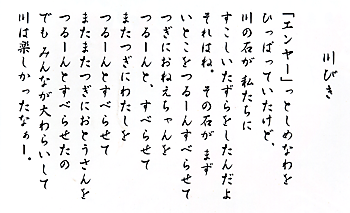 川びき
「エンヤー」っとしめなわを
ひっぱっていたけど、
川の石が 私たちに
すこしいたずらをしたんだよ
それはね。その石が まず
いとこをつるーんすべらせて
つぎにおねえちゃんを
つるーんと、すべらせて
またつぎにわたしを
つるーんとすべらせて
またまたつぎにおとうさんを
つるーんとすべらせたの
でも みんなが大わらいして
川は楽しかったなぁー。